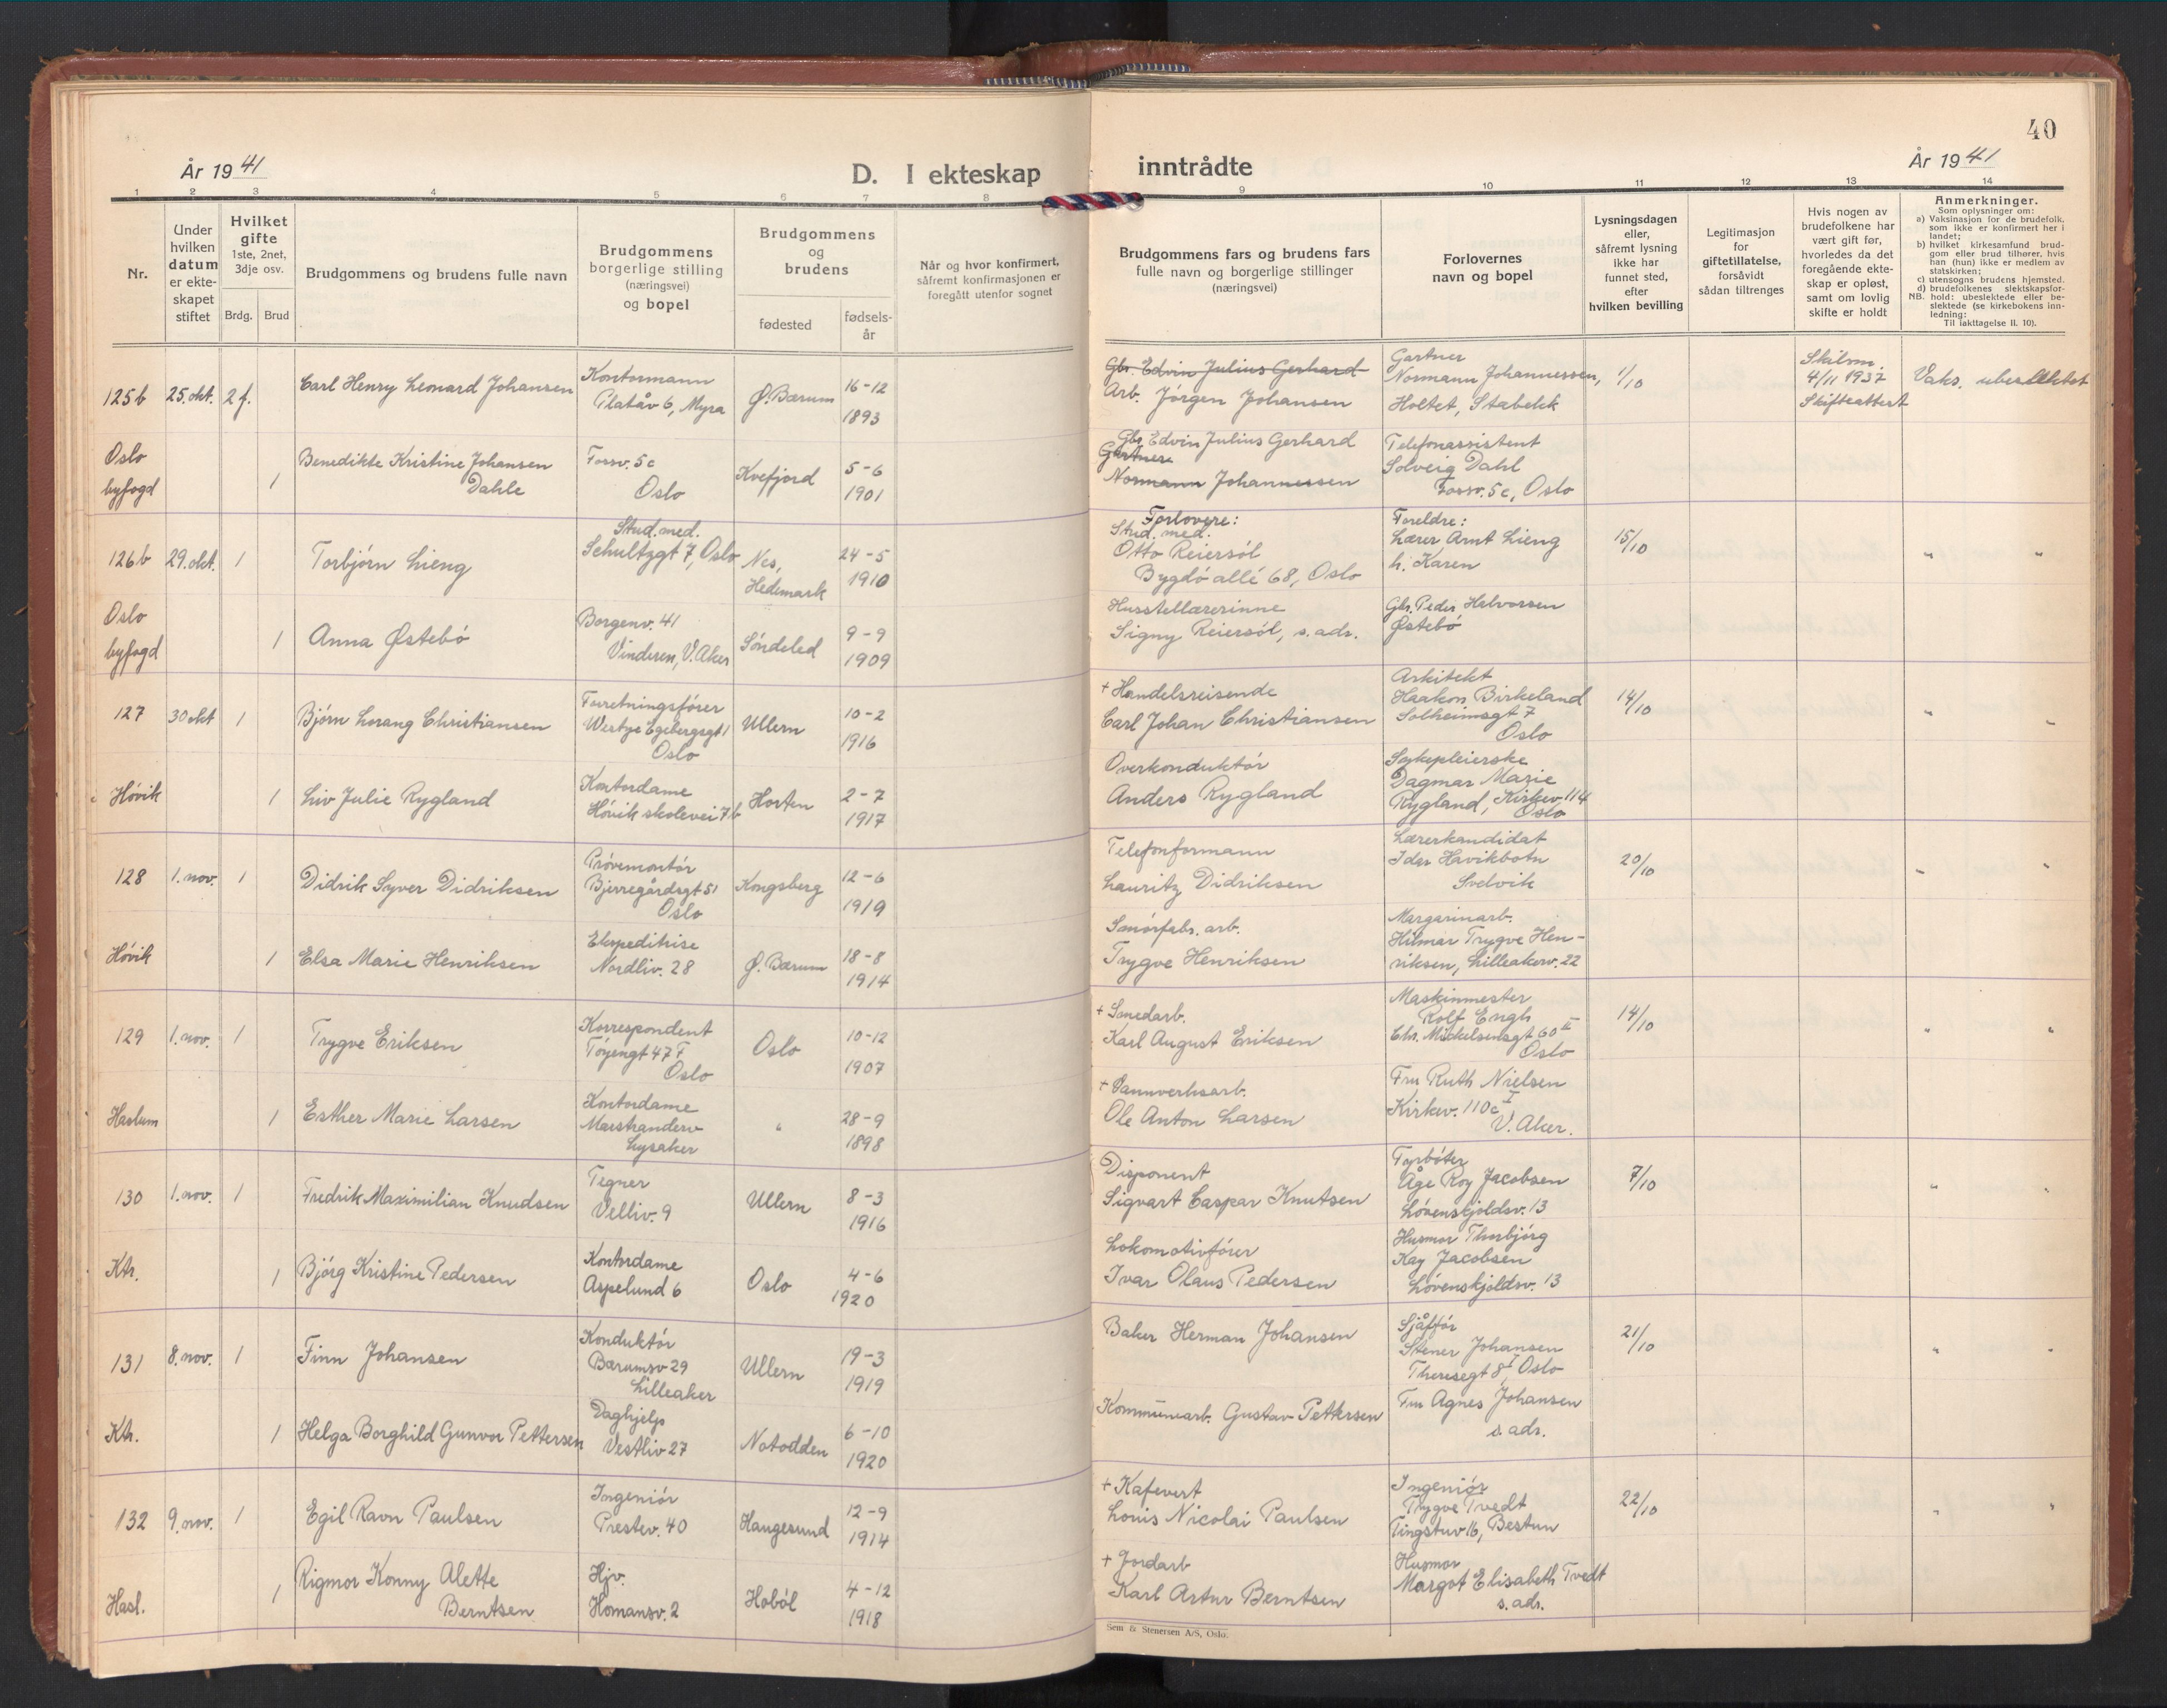 40
År 1941
D. I ekteskap
inntrådte
År 1941
1 2 3 4 5 6 7 8 9 10 11 12 13 14
Nr.
Under
hvilken
datum
er ekte-
skapet
stiftet
Hvilket
gifte
1ste, 2net,
3dje osv.
Brdg. Brud
Brudgommens og brudens fulle navn
Brudgommens
borgerlige stilling
(næringsvei)
og bopel
Brudgommens
og
brudens
fødested
fødsels-
år
Når og hvor konfirmert,
såfremt konfirmasjonen er
foregått utenfor sognet
Brudgommens fars og brudens fars
fulle navn og borgerlige stillinger
(næringsvei)
Forlovernes
navn og bopel
Lysningsdagen
eller,
såfremt lysning
ikke har
funnet sted,
efter
hvilken bevilling
Legitimasjon
for
giftetillatelse,
forsåvidt
sådan tiltrenges
Hvis nogen av
brudefolkene har
vært gift før,
hvorledes da det
foregående ekte-
skap er opløst,
samt om lovlig
skifte er holdt
Anmerkninger.
Som oplysninger om:
a) Vaksinasjon for de brudefolk,
som ikke er konfirmert her i
landet;
b) hvilket kirkesamfund brud-
gom eller brud tilhører, hvis
han (hun) ikke er medlem av
statskirken;
c) utensogns brudens hjemsted.
d) brudefolkenes slektskapsfor-
NB. hold: ubeslektede eller be-
slektede (se kirkebokens inn-
ledning:
Til iakttagelse II. 10).
125b 25.okt. 2 f. Carl Henry Leonard Johansen
Kontormann
Platåv 6, Myra
Ø. Bærum
16-12
1893
Gbr. Edvin Julius Gerhard
Arb. Jörgen Johansen
Gartner
Normann Johannessen,
Holtet, Stabekk
1/10
Skilsm.
4/11 1937
Skifteattest
Vaks. ubeslektet
Oslo
byfogd
1
Benedikte Kristine Johansen
Dahle
Fossv. 5c
Oslo
Kvefjord
5-6
1901
Gbr. Edvin Julius Gerhard
Gartner
Normann Johannessen
Telefonassistent
Solveig Dahl
Fossv. 5c, Oslo
126b 29.okt. 1 Torbjörn Lieng
Stud. med.
Schultzgt 7, Oslo
Nes,
Hedemark
24-5
1910
Forlovere:
Stud. med.
Otto Reiersöl
Bygdö allé 68, Oslo
Foreldre:
Lærer Arnt Lieng
h. Karen
15/10 " "
Oslo
byfogd
1 Anna Östebö
Borgenv. 41
Vinderen, V. Aker
Söndeled
9-9
1909
Husstellærerinne
Signy Reiersöl, s. adr.
Gbr. Peder Halvorsen
Östebö
127 30 okt 1 Björn Lorang Christiansen
Forretningsförer
Westye Egebergsgt 1
Oslo
Ullern
10-2
1916
+ Handelsreisende
Carl Johan Christiansen
Arkitekt
Haakon Birkeland
Solheimsgt 7
Oslo
14/10 " "
Hövik 1 Liv Julie Rygland
Kontordame
Hövik skolevei 7b
Horten
2-7
1917
Overkonduktör
Anders Rygland
Sykepleierske
Dagmar Marie
Rygland, Kirkev. 114
Oslo
128 1. nov. 1 Didrik Syver Didriksen
Prövemontör
Bjerregårdsgt 51
Oslo
Kongsberg
12-6
1919
Telefonformann
Lauritz Didriksen
Lærerkandidat
Idar Havikbotn
Svelvik
20/10 " "
Hövik 1 Elsa Marie Henriksen
Ekspeditrise
Nordliv. 28
Ø. Bærum
18-8
1914
Smörfabr. arb.
Trygve Henriksen
Margarinarb.
Hilmar Trygve Hen-
riksen, Lilleakerv. 22
129 1. nov. 1 Trygve Eriksen
Korrespondent
Töyengt 47 F
Oslo
Oslo
10-12
1907
+ Smedarb.
Karl August Eriksen
Maskinmester
Rolf Engh
Chr. Mickelsensgt 60 II
Oslo
14/10 " "
Haslum 1 Esther Marie Larsen
Kontordame
Marstranderv
Lysaker
"
28-9
1898
+ Vannverksarb.
Ole Anton Larsen
Fru Ruth Nielsen
Kirkev. 110c I
V. Aker.
130 1. nov. 1 Fredrik Maximilian Knudsen
Tegner
Velliv. 9
Ullern
8-3
1916
Disponent
Sigvart Caspar Knutsen
Fyrböter
Åge Roy Jacobsen
Lövenskjoldsv. 13
7/10 " "
Ktr. 1 Björg Kristine Pedersen
Kontordame
Aspelund 6
Oslo
4-6
1920
Lokomotivförer
Ivar Olaus Pedersen
Husmor Thorbjörg
Kay Jacobsen
Lövenskjoldsv. 13
131 8. nov. 1 Finn Johansen
Konduktör
Bærumsv 29
Lilleaker
Ullern
19-3
1919
Baker Herman Johansen
Sjåffør
Stener Johansen
Theresegt 8 I, Oslo
21/10 " "
Ktr. 1 Helga Borghild Gunvor Pettersen
Daghjelp
Vestliv 27
Notodden
6-10
1920
Kommunearb. Gustav Pettersen
Fru Agnes Johansen
s. adr.
132 9. nov. 1 Egil Ravn Paulsen
Ingeniör
Prestev. 40
Haugesund
12-9
1914
+ Kafevert
Louis Nicolai Paulsen
Ingeniör
Trygve Tvedt
Tingstuv 16, Bestun
22/10 " "
Hasl. 1
Rigmor Konny Alette
Berntsen
Hjv.
Homansv. 2
Hoböl
4-12
1918
+ Jordarb
Karl Artur Berntsen
Husmor
Margot Elisabeth Tvedt
s. adr.
Sem & Stenersen A/S, Oslo.